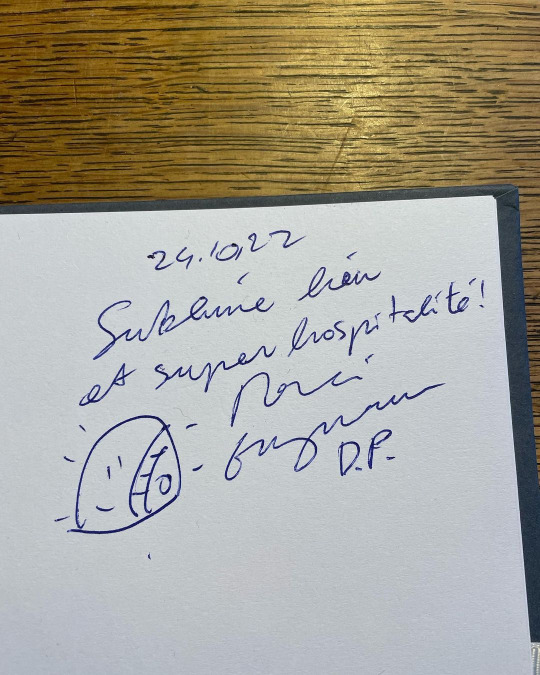 24.10.22
Sublime lieu
et super hospitalité!
Merci
D.P.